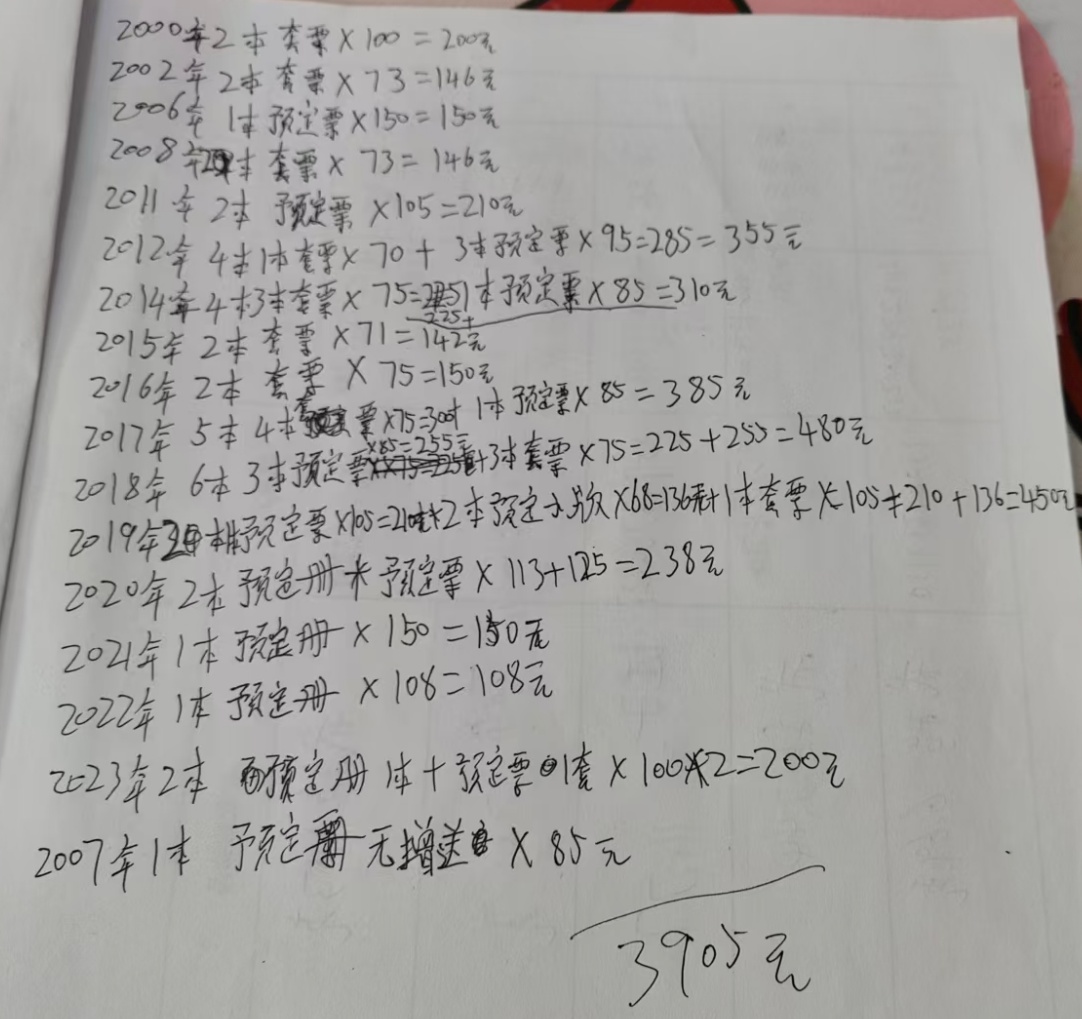 2000年2本套票×100=200元
2002年2本套票×73=146元
2006年1本预定票×150=150元
2008年2本套票×73=146元
2011年2本预定票×105=210元
2012年4本1本套票×70+3本预定票×95=285=355元
2014年4本3本套票×75=225 1本预定票×85=310元
225+
2015年2本套票×71=142元
2016年2本套票×75=150元
2017年5本4本套票×75=300+1本预定票×85=385元
×85=255元
2018年6本3本预定票+3本套票×75=225+255=480元
2019年本预定票×105=210+2本预定小版×68=136+1本套票×105=210+136=450元
2020年2本预定册*预定票×113+125=238元
2021年1本预定册×150=150元
2022年1本预定册×108=108元
2023年2本预定册1本+预定票1套×100×2=200元
2007年1本预定册无增送×85元
3905元